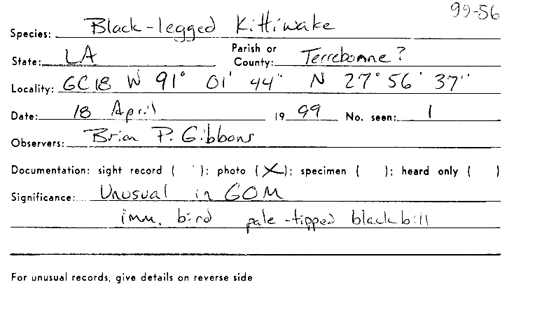 99-56
Species: Black-legged Kittiwake
State: LA Parish or County: Terrebonne?
Locality: GC18 W 91° 01' 44" N 27° 56' 37"
Date: 18 April 1999 No. seen: 1
Observers: Brian P. Gibbons
Documentation: sight record ( ): photo (X): specimen ( ): heard only ( )
Significance: Unusual in GOM
imm. bird pale-tipped black bill
For unusual records, give details on reverse side